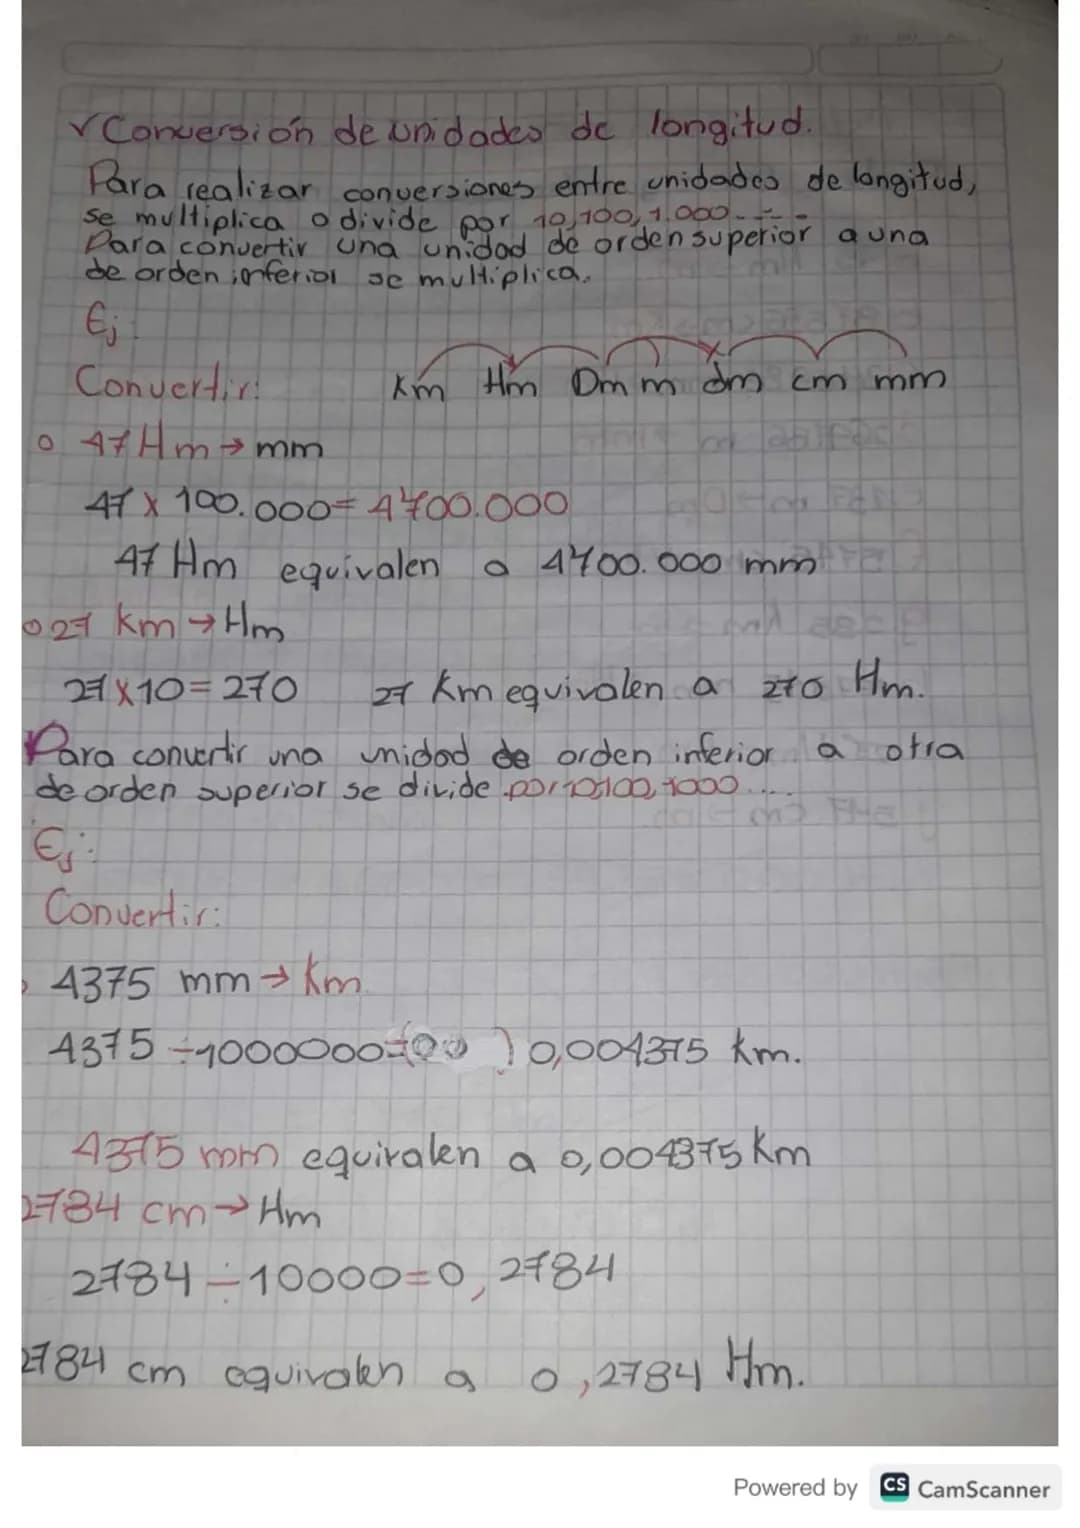 √ Conversión de unidades de longitud.
Para realizar conversiones entre unidades de longitud,
se multiplica o divide por 10,100,1.000----
Para convertir una unidad de orden superior a una
de orden inferior se multiplica.
Ej:
Convertir: Km Hm Dm m dm cm mm
o 47 Hm → mm
47 x 100.000 = 4700.000
47 Hm equivalen a 4700.000 mm
o 27 km → Hm
27 x 10 = 270 27 Km equivalen a 270 Hm.
Para convertir una unidad de orden inferior a otra
de orden superior se divide por 10,100,1000....
Ej:
Convertir:
4375 mm → Km
4375 ÷ 1000000 = 0,004375 km.
4375 mm equivalen a 0,004375 Km
2784 cm → Hm
2784 ÷ 10000 = 0,2784
2784 cm equivalen a 0,2784 Hm.
Powered by CS CamScanner